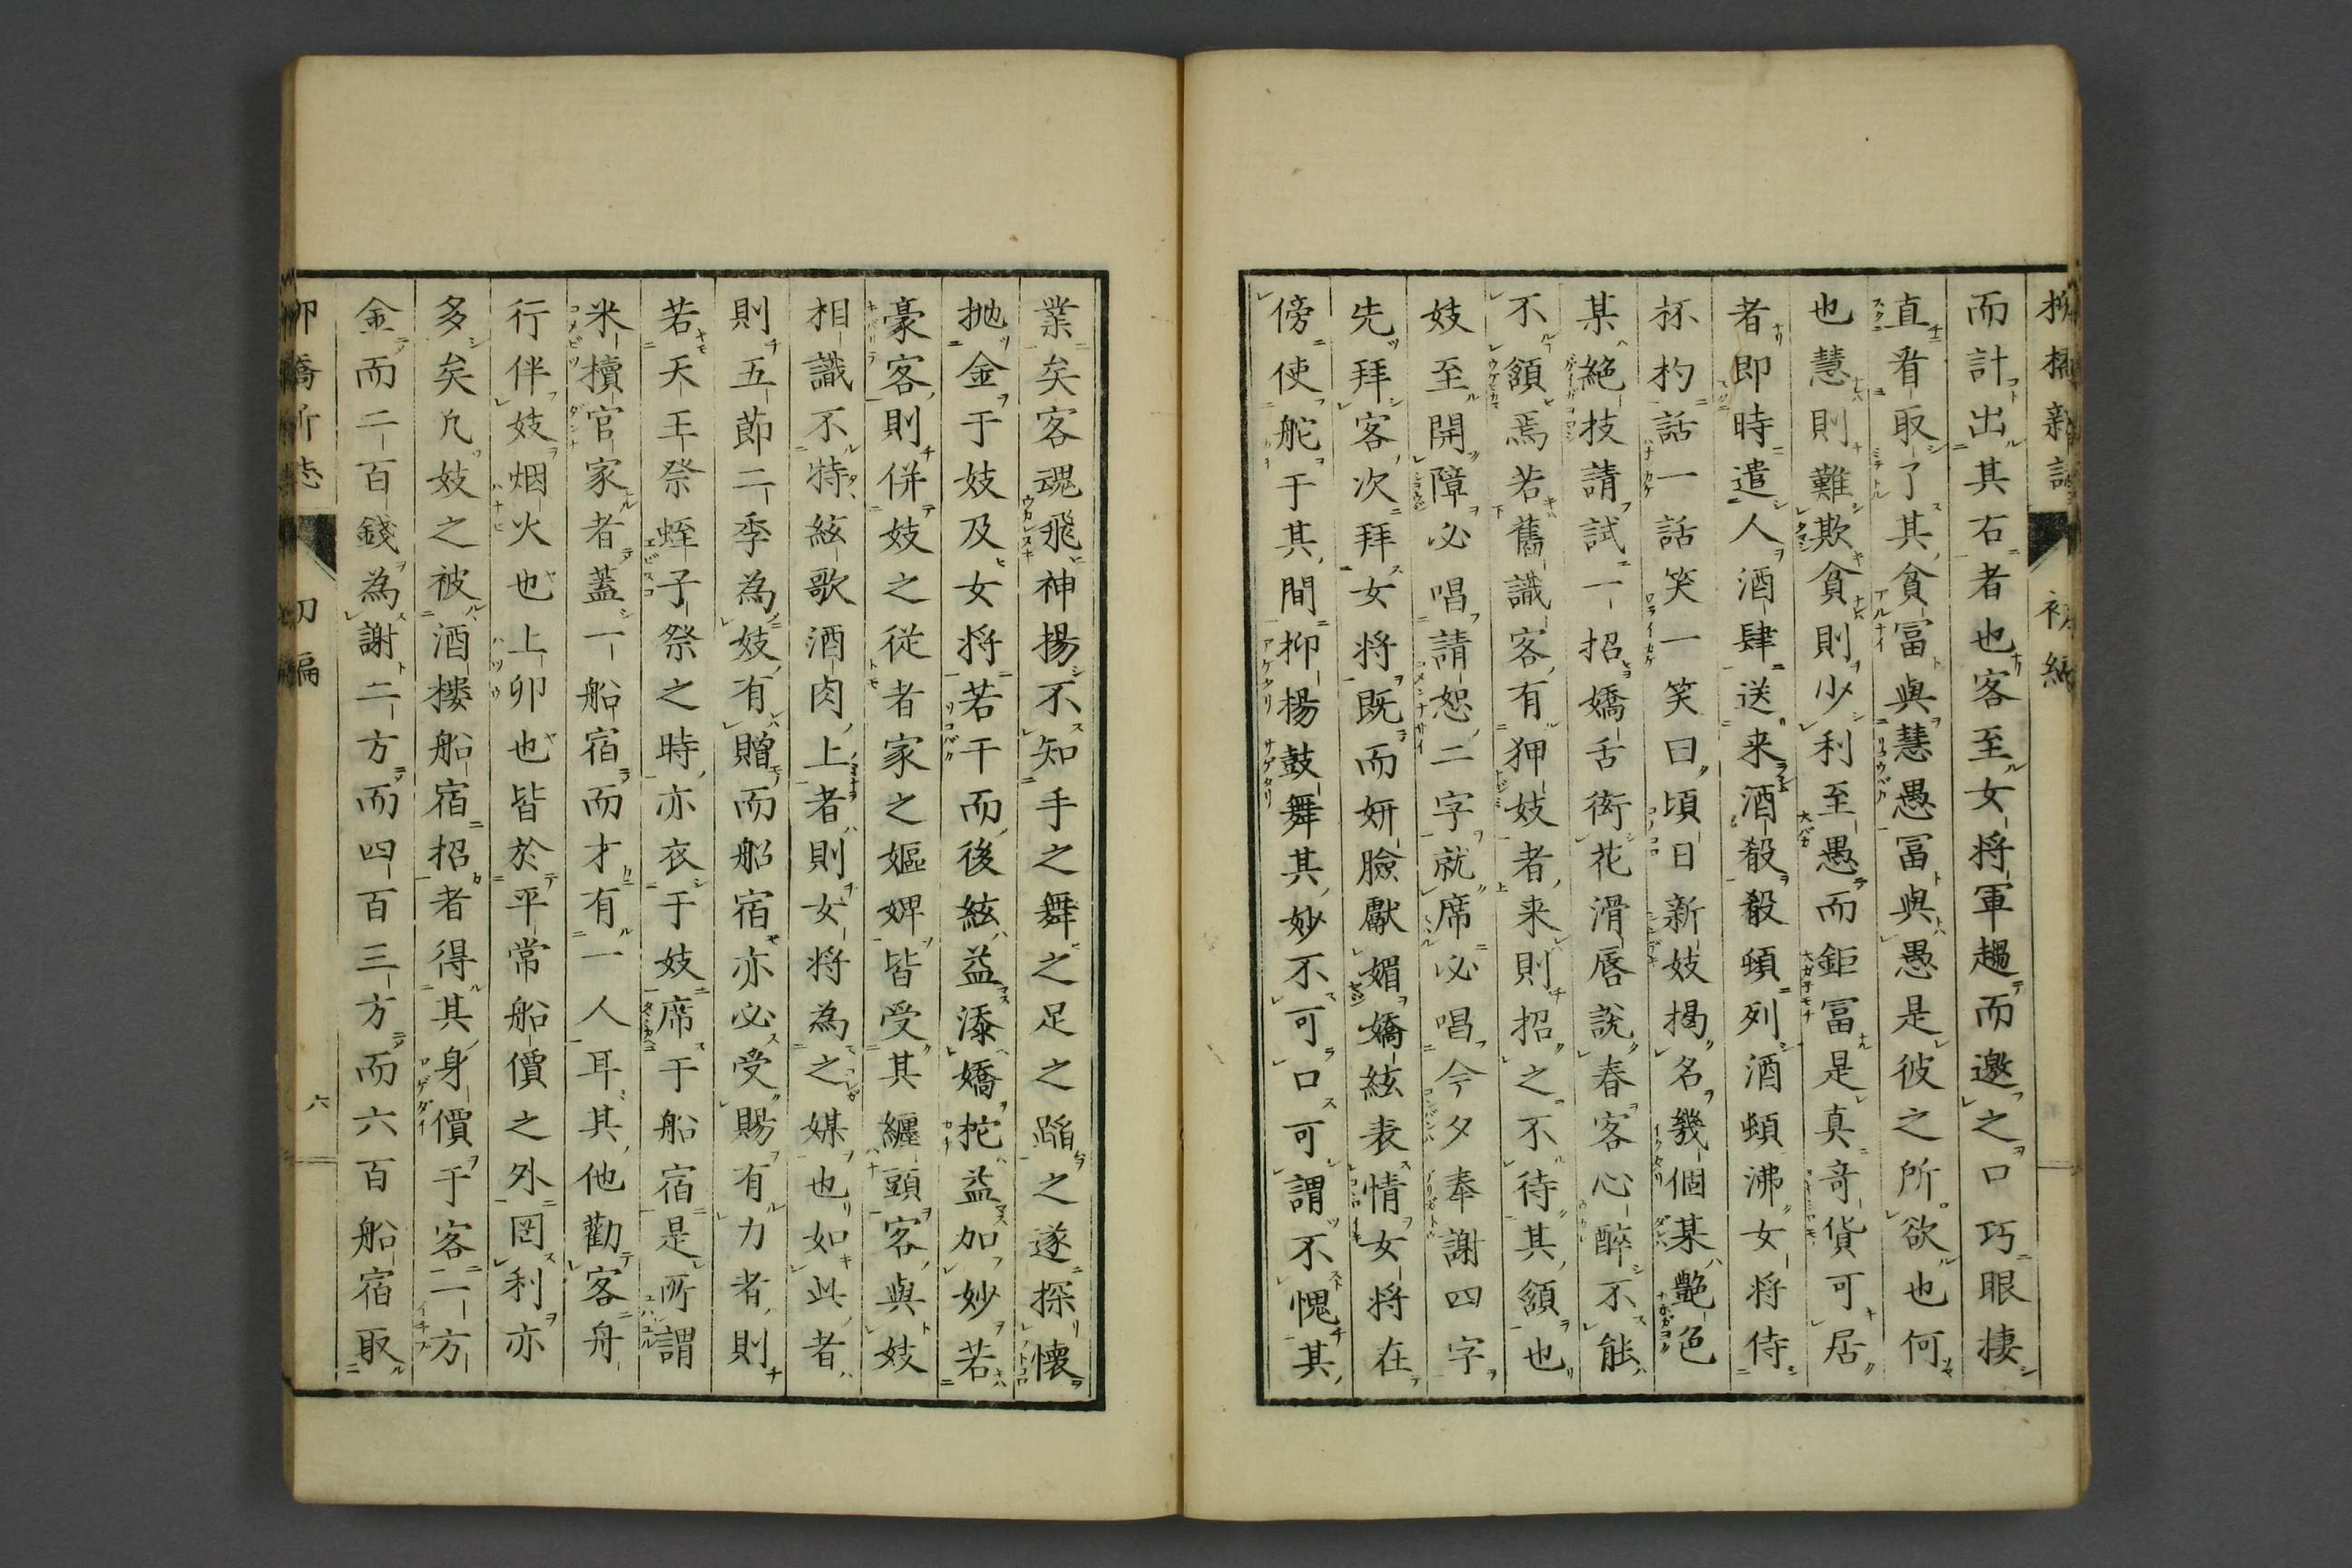 柳橋新誌 初編
而計出其右者也客至女將軍趨而邀之口巧眼捷
直看取了其貧冨與慧愚冨與愚是彼之所欲也何
也慧則難欺貧則少利至愚而鉅冨是真竒貨可居
者即時遣人酒肆送来酒殽殽頓列酒頓沸女将侍
杯杓話一話笑一笑曰頃日新妓掲名幾個某艶色
某絶技請試一招嬌舌衒花滑唇説春客心醉不能
不頷焉若舊識客有狎妓者来則招之不待其頷也
妓至開障必唱請恕二字就席必唱今夕奉謝四字
先拜客次拜女将既而妍臉獻媚嬌絃表情女将在
傍使舵于其間抑揚鼓舞其妙不可口可謂不愧其
業矣客魂飛神揚不知手之舞之足之蹈之遂探懐
抛金于妓及女将若干而後絃益添嬌柁益加妙若
豪客則併妓之従者家之嫗婢皆受其纏頭客與妓
相識不特絃歌酒肉上者則女将為之媒也如此者
則五節二季為妓有贈而船宿亦必受賜有力者則
若天王祭蛭子祭之時亦衣于妓席于船宿是所謂
米櫝官家者蓋一船宿而才有一人耳其他勸客舟
行伴妓烟火也上卯也皆於平常船價之外罔利亦
多矣凢妓之被酒樓船宿招者得其身價于客二方
金而二百錢為謝二方而四百三方而六百船宿取
柳橋新誌 初編 六